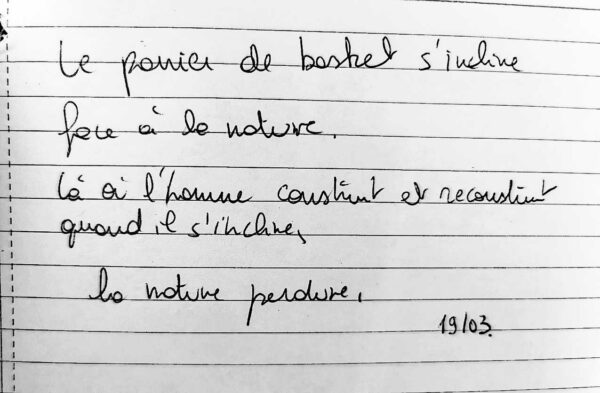 Le panier de basket s'incline
face à la nature.
Là où l'homme construit et reconstruit
quand il s'incline,
la nature perdure.
19/03.